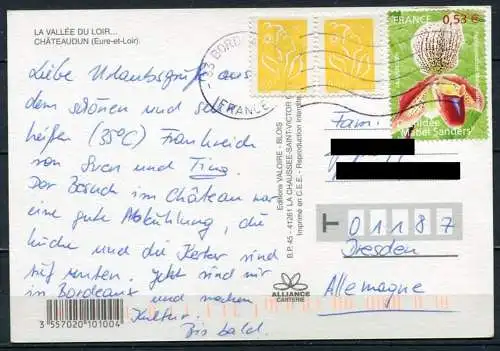 LA VALLÉE DU LOIR...
CHÂTEAUDUN (Eure-et-Loir).
Liebe Urlaubsgrüße aus
dem schönen und sau
heißen (35°C) Frankreich
von Sven und Tina.
Der Besuch im Château war
eine gute Abkühlung, die
Küche und die Kerker sind
tief unten. Jetzt sind wir
in Bordeaux und machen
Kultur.
Bis bald.
3 557020 101004
Editions VALOIRE - BLOIS
B.P. 45 - 41261 LA CHAUSSEE-SAINT-VICTOR
Imprimé en C.E.E. - Reproduction interdite
ALLIANCE
CARTERIE
33 BORDEAUX
FRANCE
FRANCE 0,53 €
Mabel Sanders
Fam.
T
01187
Dresden
Allemagne